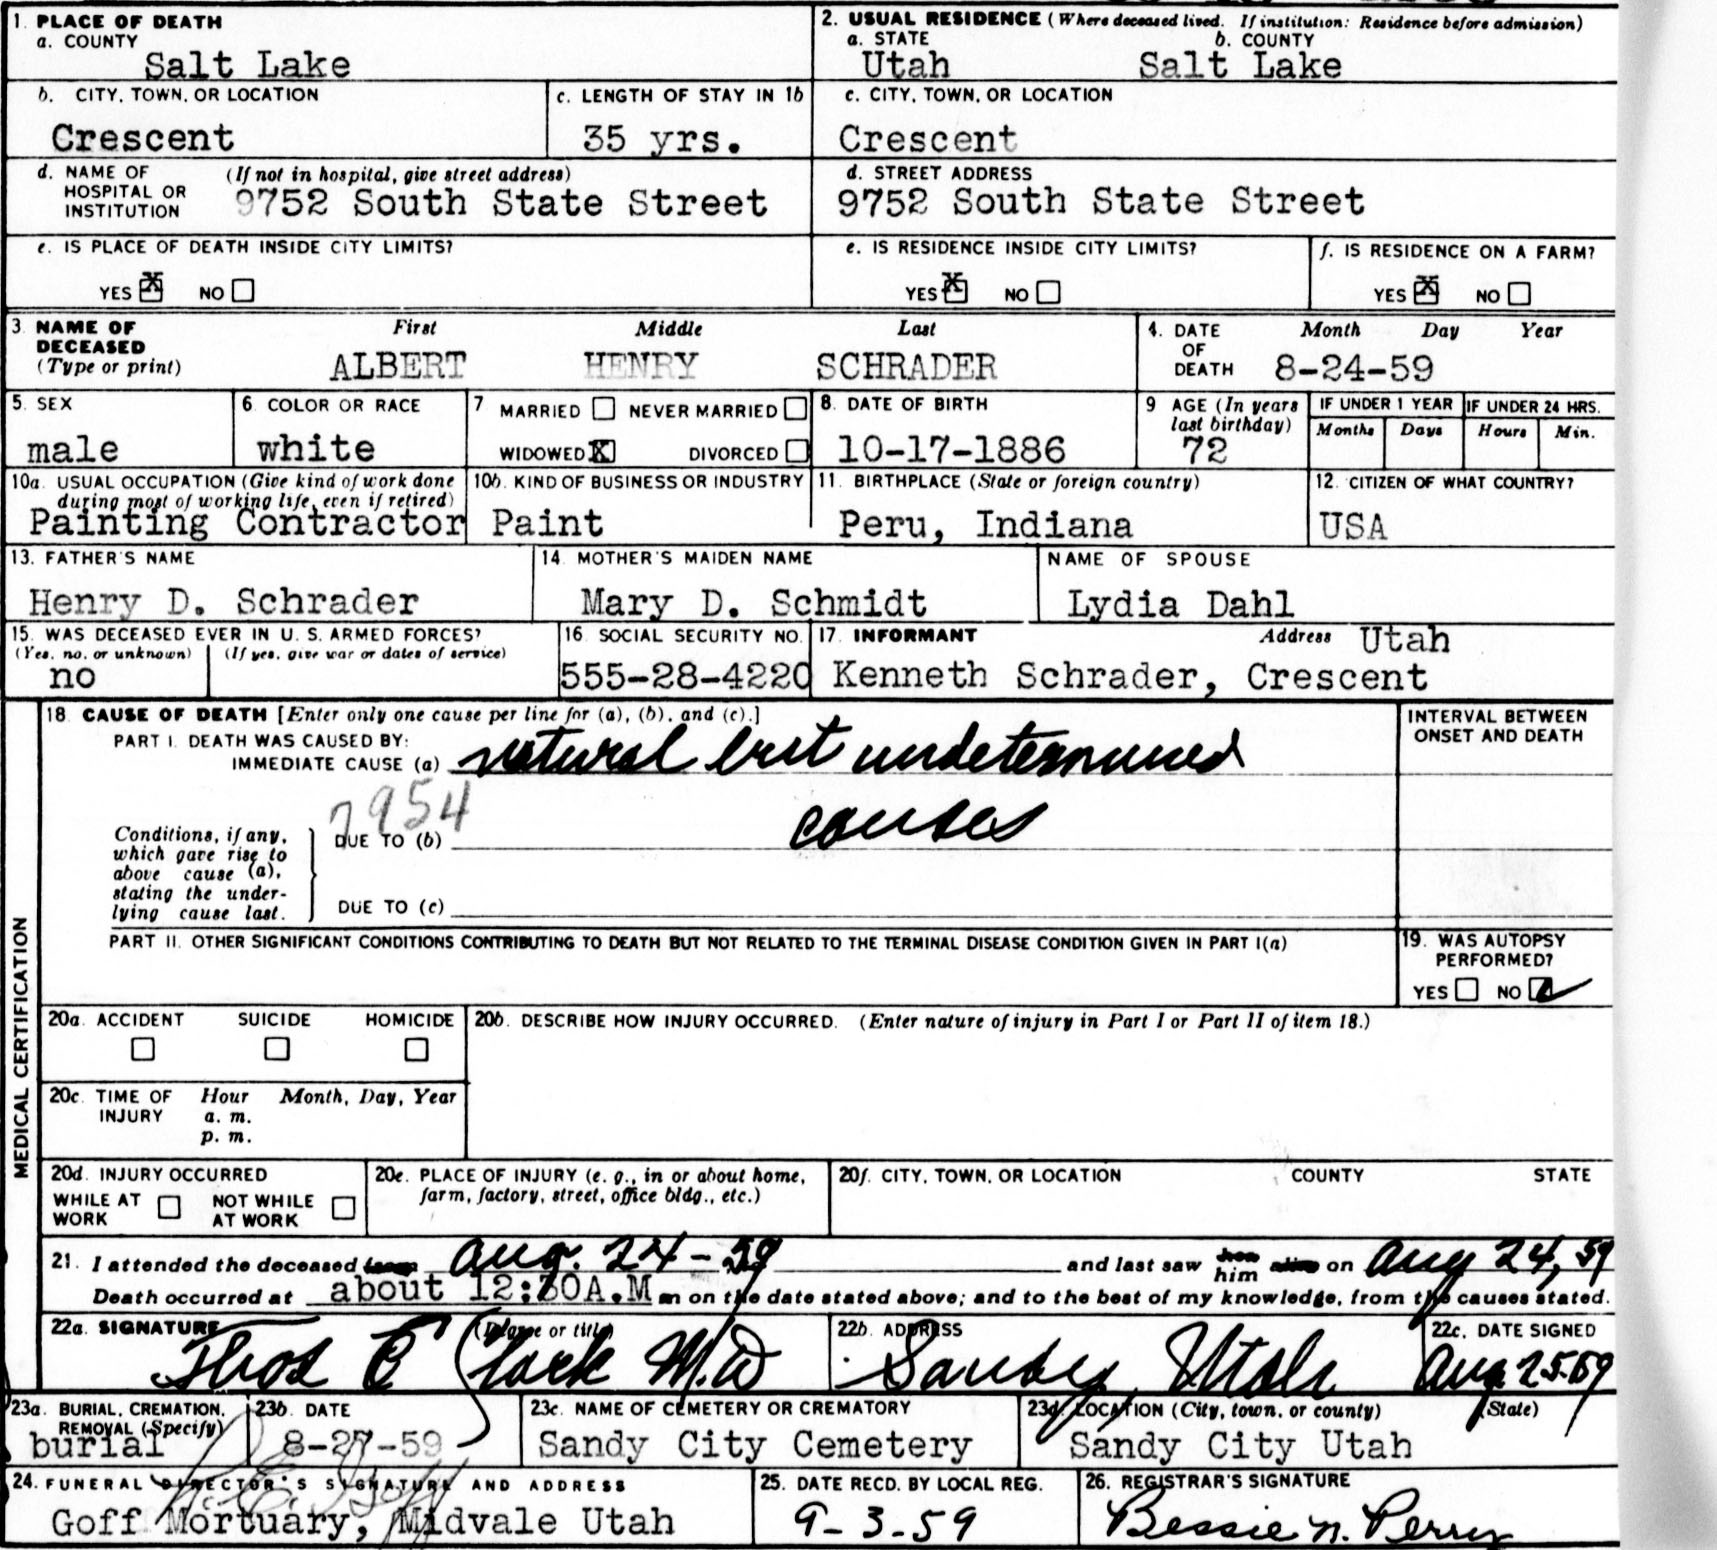 1. PLACE OF DEATH
a. COUNTY
Salt Lake
2. USUAL RESIDENCE (Where deceased lived. If institution: Residence before admission)
a. STATE b. COUNTY
Utah Salt Lake
b. CITY, TOWN, OR LOCATION
Crescent
c. LENGTH OF STAY IN 1b
35 yrs.
c. CITY, TOWN, OR LOCATION
Crescent
d. NAME OF HOSPITAL OR INSTITUTION (If not in hospital, give street address)
9752 South State Street
d. STREET ADDRESS
9752 South State Street
e. IS PLACE OF DEATH INSIDE CITY LIMITS?
YES X NO
e. IS RESIDENCE INSIDE CITY LIMITS?
YES X NO
f. IS RESIDENCE ON A FARM?
YES X NO
3. NAME OF DECEASED (Type or print)
First Middle Last
ALBERT HENRY SCHRADER
4. DATE OF DEATH Month Day Year
8-24-59
5. SEX
male
6. COLOR OR RACE
white
7 MARRIED NEVER MARRIED
WIDOWED X DIVORCED
8. DATE OF BIRTH
10-17-1886
9 AGE (In years last birthday)
72
IF UNDER 1 YEAR IF UNDER 24 HRS.
Months Days Hours Min.
10a. USUAL OCCUPATION (Give kind of work done during most of working life, even if retired)
Painting Contractor
10b. KIND OF BUSINESS OR INDUSTRY
Paint
11. BIRTHPLACE (State or foreign country)
Peru, Indiana
12. CITIZEN OF WHAT COUNTRY?
USA
13. FATHER'S NAME
Henry D. Schrader
14. MOTHER'S MAIDEN NAME
Mary D. Schmidt
NAME OF SPOUSE
Lydia Dahl
15. WAS DECEASED EVER IN U. S. ARMED FORCES?
(Yes, no, or unknown) (If yes, give war or dates of service)
no
16. SOCIAL SECURITY NO.
555-28-4220
17. INFORMANT Address Utah
Kenneth Schrader, Crescent
MEDICAL CERTIFICATION
18. CAUSE OF DEATH [Enter only one cause per line for (a), (b), and (c).]
PART I. DEATH WAS CAUSED BY:
IMMEDIATE CAUSE (a) natural but undetermined
7954
causes
Conditions, if any, which gave rise to above cause (a), stating the underlying cause last.
DUE TO (b)
DUE TO (c)
INTERVAL BETWEEN ONSET AND DEATH
PART II. OTHER SIGNIFICANT CONDITIONS CONTRIBUTING TO DEATH BUT NOT RELATED TO THE TERMINAL DISEASE CONDITION GIVEN IN PART I(a)
19. WAS AUTOPSY PERFORMED?
YES NO
20a. ACCIDENT SUICIDE HOMICIDE
20b. DESCRIBE HOW INJURY OCCURRED. (Enter nature of injury in Part I or Part II of item 18.)
20c. TIME OF INJURY Hour Month, Day, Year
a. m.
p. m.
20d. INJURY OCCURRED
WHILE AT WORK NOT WHILE AT WORK
20e. PLACE OF INJURY (e. g., in or about home, farm, factory, street, office bldg., etc.)
20f. CITY, TOWN, OR LOCATION COUNTY STATE
21. I attended the deceased Aug. 24 - 59 and last saw him on Aug 24, 59
Death occurred at about 12:30A.M m on the date stated above; and to the best of my knowledge, from the causes stated.
22a. SIGNATURE (Degree or title)
Thos E Clark M.D
22b. ADDRESS
Sandy, Utah
22c. DATE SIGNED
Aug 25-59
23a. BURIAL, CREMATION, REMOVAL (Specify)
burial
23b. DATE
8-27-59
23c. NAME OF CEMETERY OR CREMATORY
Sandy City Cemetery
23d. LOCATION (City, town, or county) (State)
Sandy City Utah
24. FUNERAL DIRECTOR'S SIGNATURE AND ADDRESS
Goff Mortuary, Midvale Utah
25. DATE RECD. BY LOCAL REG.
9-3-59
26. REGISTRAR'S SIGNATURE
Bessie N. Perry